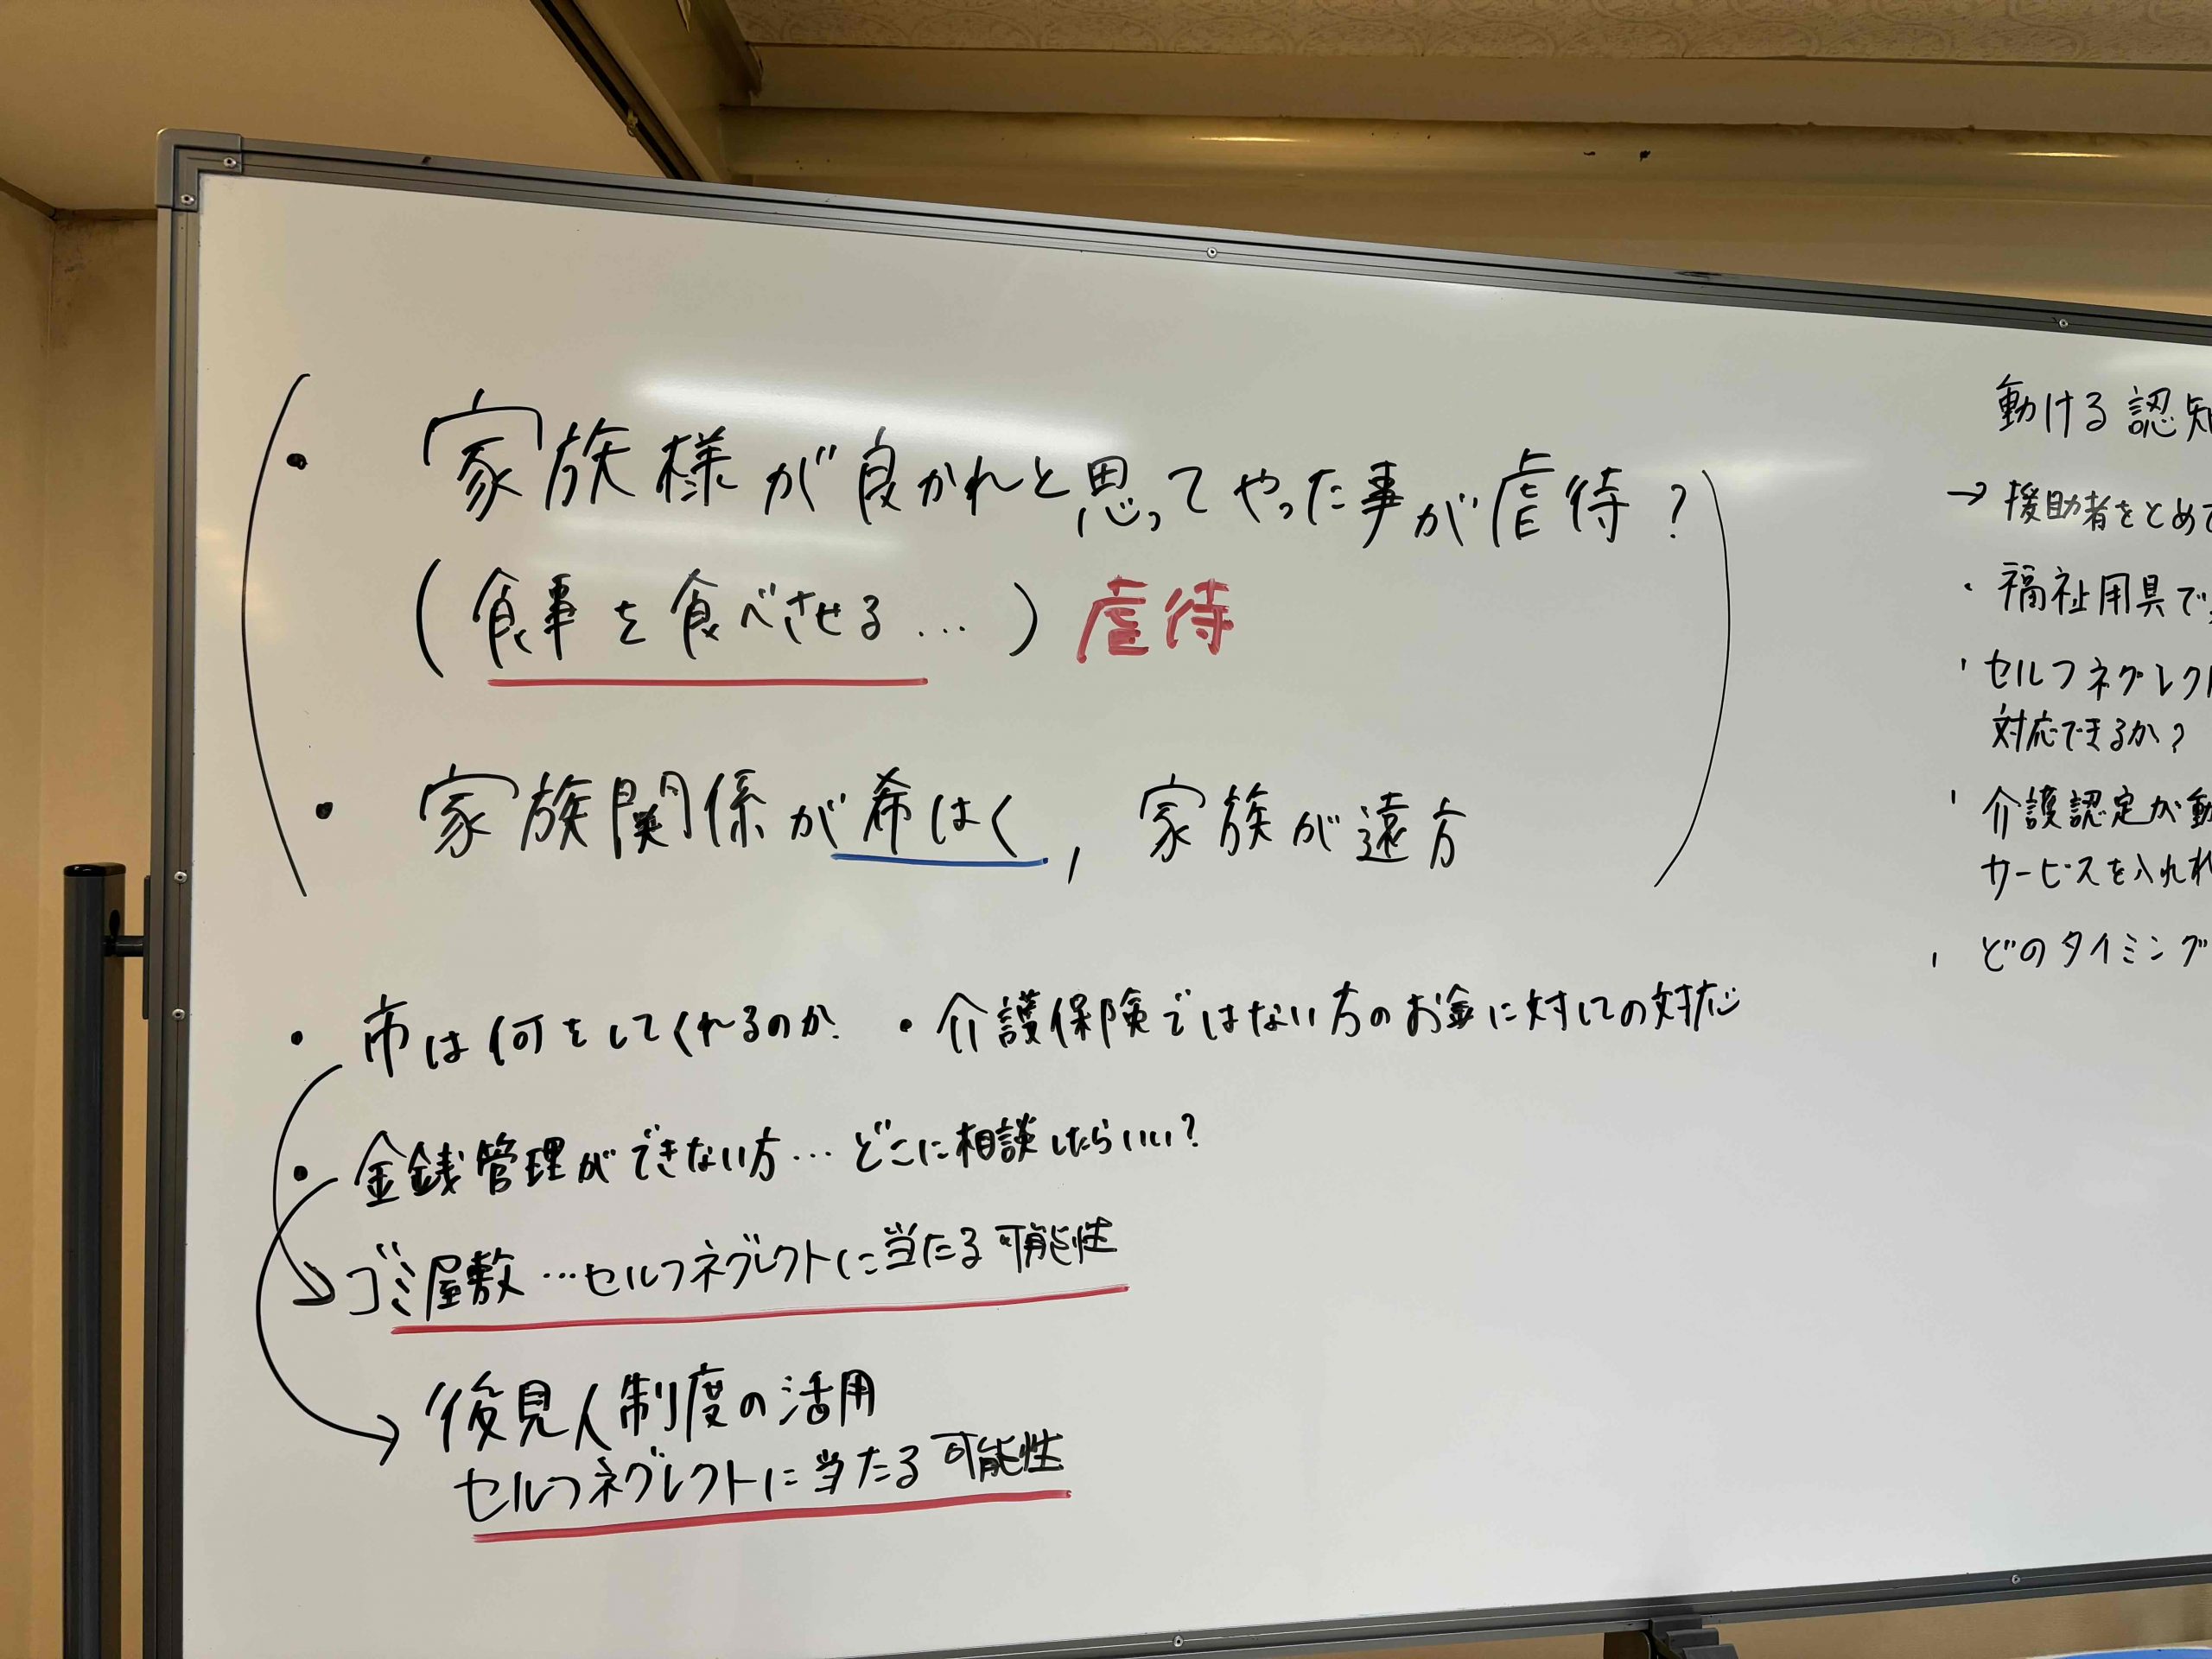 ・家族様が良かれと思ってやった事が虐待？
(食事を食べさせる…) 虐待
・家族関係が希はく, 家族が遠方
・市は何をしてくれるのか ・介護保険ではない方のお金に対しての対応
・金銭管理ができない方…どこに相談したらいい？
→ゴミ屋敷…セルフネグレクトに当たる可能性
→後見人制度の活用
セルフネグレクトに当たる可能性
動ける認知
→援助者をとめて
・福祉用具で
・セルフネグレクト
対応できるか？
・介護認定が動
サービスを入れれ
・どのタイミング